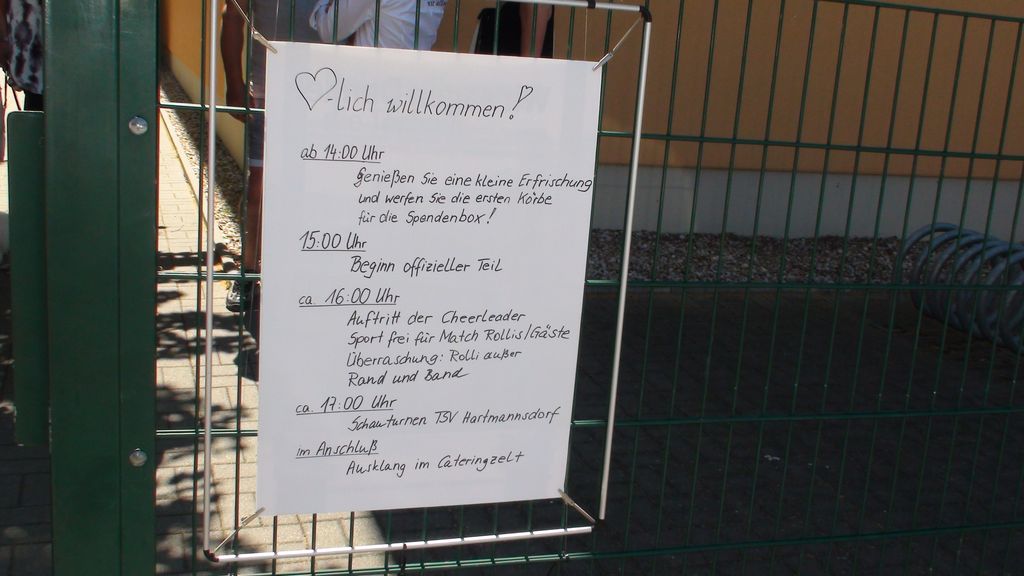 ♡-lich willkommen!
ab 14:00 Uhr
Genießen Sie eine kleine Erfrischung
und werfen Sie die ersten Körbe
für die Spendenbox!
15:00 Uhr
Beginn offizieller Teil
ca. 16:00 Uhr
Auftritt der Cheerleader
Sport frei für Match Rollis/Gäste
Überraschung: Rolli außer
Rand und Band
ca. 17:00 Uhr
Schauturnen TSV Hartmannsdorf
im Anschluß
Ausklang im Cateringzelt